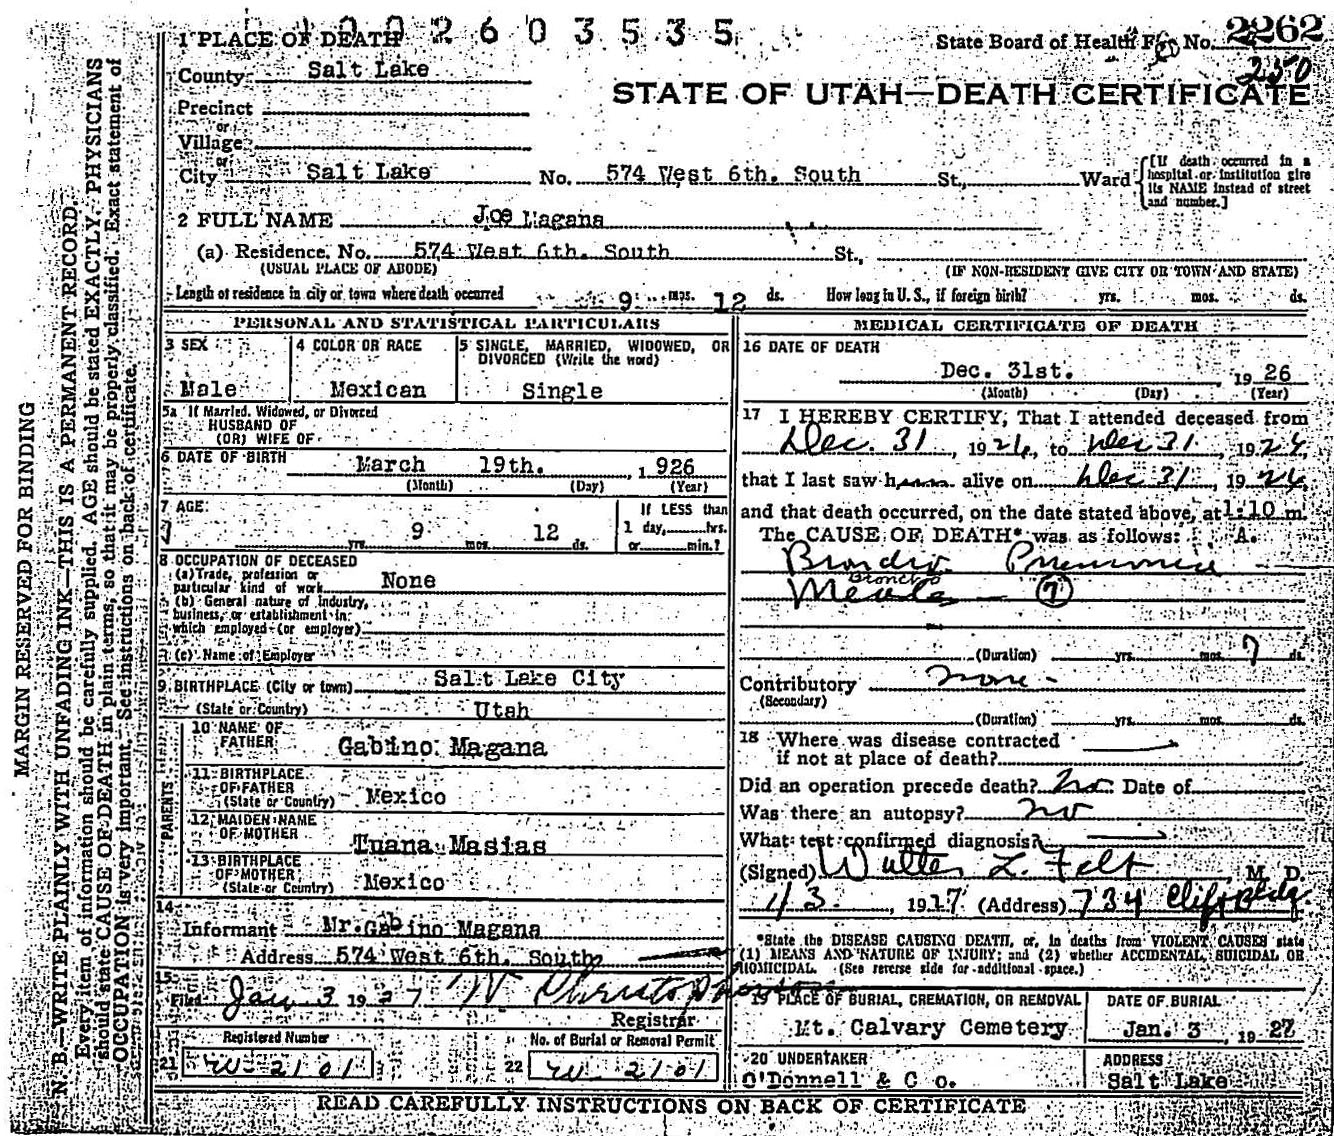 1002603535
1 PLACE OF DEATH
State Board of Health File No. 2262
County Salt Lake
250
STATE OF UTAH—DEATH CERTIFICATE
Precinct
or
Village
or
City Salt Lake No. 574 West 6th. South St., Ward
[If death occurred in a
hospital or institution give
its NAME instead of street
and number.]
2 FULL NAME Joe Magana
(a) Residence. No. 574 West 6th. South St.,
(USUAL PLACE OF ABODE) (IF NON-RESIDENT GIVE CITY OR TOWN AND STATE)
Length of residence in city or town where death occurred 9 mos. 12 ds. How long in U. S., if foreign birth? yrs. mos. ds.
PERSONAL AND STATISTICAL PARTICULARS
3 SEX
Male
4 COLOR OR RACE
Mexican
5 SINGLE, MARRIED, WIDOWED, OR
DIVORCED (Write the word)
Single
5a If Married, Widowed, or Divorced
HUSBAND OF
(OR) WIFE OF
6 DATE OF BIRTH March 19th. 1926
(Month) (Day) (Year)
7 AGE
9 12
yrs. mos. ds.
If LESS than
1 day, hrs.
or min.?
8 OCCUPATION OF DECEASED
(a) Trade, profession or
particular kind of work None
(b) General nature of Industry,
business, or establishment in
which employed (or employer)
(c) Name of Employer
9 BIRTHPLACE (City or town) Salt Lake City
(State or Country) Utah
PARENTS
10 NAME OF
FATHER Gabino Magana
11 BIRTHPLACE
OF FATHER
(State or Country) Mexico
12 MAIDEN NAME
OF MOTHER Tuana Masias
13 BIRTHPLACE
OF MOTHER
(State or Country) Mexico
14
Informant Mr. Gabino Magana
Address 574 West 6th. South
15
Filed Jan 3 1927 W Christopherson
Registrar
Registered Number
21 W-2101
No. of Burial or Removal Permit
22 W-2101
MEDICAL CERTIFICATE OF DEATH
16 DATE OF DEATH
Dec. 31st. 1926
(Month) (Day) (Year)
17 I HEREBY CERTIFY, That I attended deceased from
Dec. 31, 1926, to Dec 31, 1926,
that I last saw him alive on Dec 31, 1926,
and that death occurred, on the date stated above, at 1:10 m
The CAUSE OF DEATH* was as follows: A.
Broncho Pneumonia
Broncho
Measles (7)
(Duration) yrs. mos. 7 ds.
Contributory none -
(Secondary)
(Duration) yrs. mos. ds.
18 Where was disease contracted
if not at place of death?
Did an operation precede death? No Date of
Was there an autopsy? no
What test confirmed diagnosis?
(Signed) Walter L. Felt M. D.
1/3, 1927 (Address) 734 Clift Bldg.
*State the DISEASE CAUSING DEATH, or, in deaths from VIOLENT CAUSES state
(1) MEANS AND NATURE OF INJURY; and (2) whether ACCIDENTAL, SUICIDAL OR
HOMICIDAL. (See reverse side for additional space.)
19 PLACE OF BURIAL, CREMATION, OR REMOVAL
Mt. Calvary Cemetery
DATE OF BURIAL
Jan. 3, 1927
20 UNDERTAKER
O'Donnell & Co.
ADDRESS
Salt Lake
READ CAREFULLY INSTRUCTIONS ON BACK OF CERTIFICATE
MARGIN RESERVED FOR BINDING
N. B.—WRITE PLAINLY WITH UNFADING INK—THIS IS A PERMANENT RECORD.
Every item of information should be carefully supplied. AGE should be stated EXACTLY. PHYSICIANS
should state CAUSE OF DEATH in plain terms, so that it may be properly classified. Exact statement of
OCCUPATION is very important. See instructions on back of certificate.